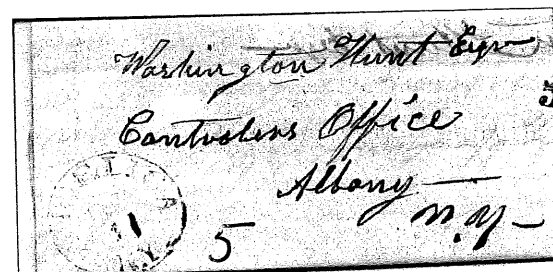 Washington Hunt Esqr
Controlers Office
Albany
N.Y
5